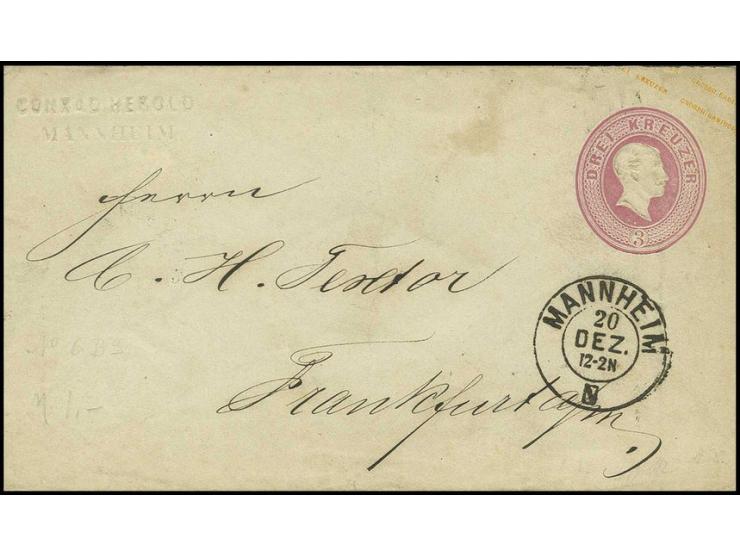 CONRAD HEROLD
MANNHEIM
DREI KREUZER
3
Herrn
C. H. Textor
Frankfurt a/m
MANNHEIM
20
DEZ.
12-2N
No 6 B3